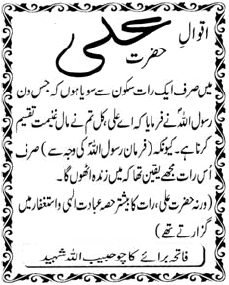 اقوالِ
حضرت علی
میں صرف ایک رات سکون سے سویا ہوں کہ جس دن
رسول اللہؐ نے فرمایا کہ اے علی، کل تم نے مالِ غنیمت تقسیم
کرنا ہے۔ کیونکہ (فرمان رسول اللہؐ کی وجہ سے) صرف
اُس رات مجھے یقین تھا کہ میں زندہ اٹھوں گا۔
(ورنہ حضرت علی، رات کا بیشتر حصہ عبادت الٰہی و استغفار میں
گزارتے تھے)
فاتحہ برائے کاچو حبیب اللہ شہید